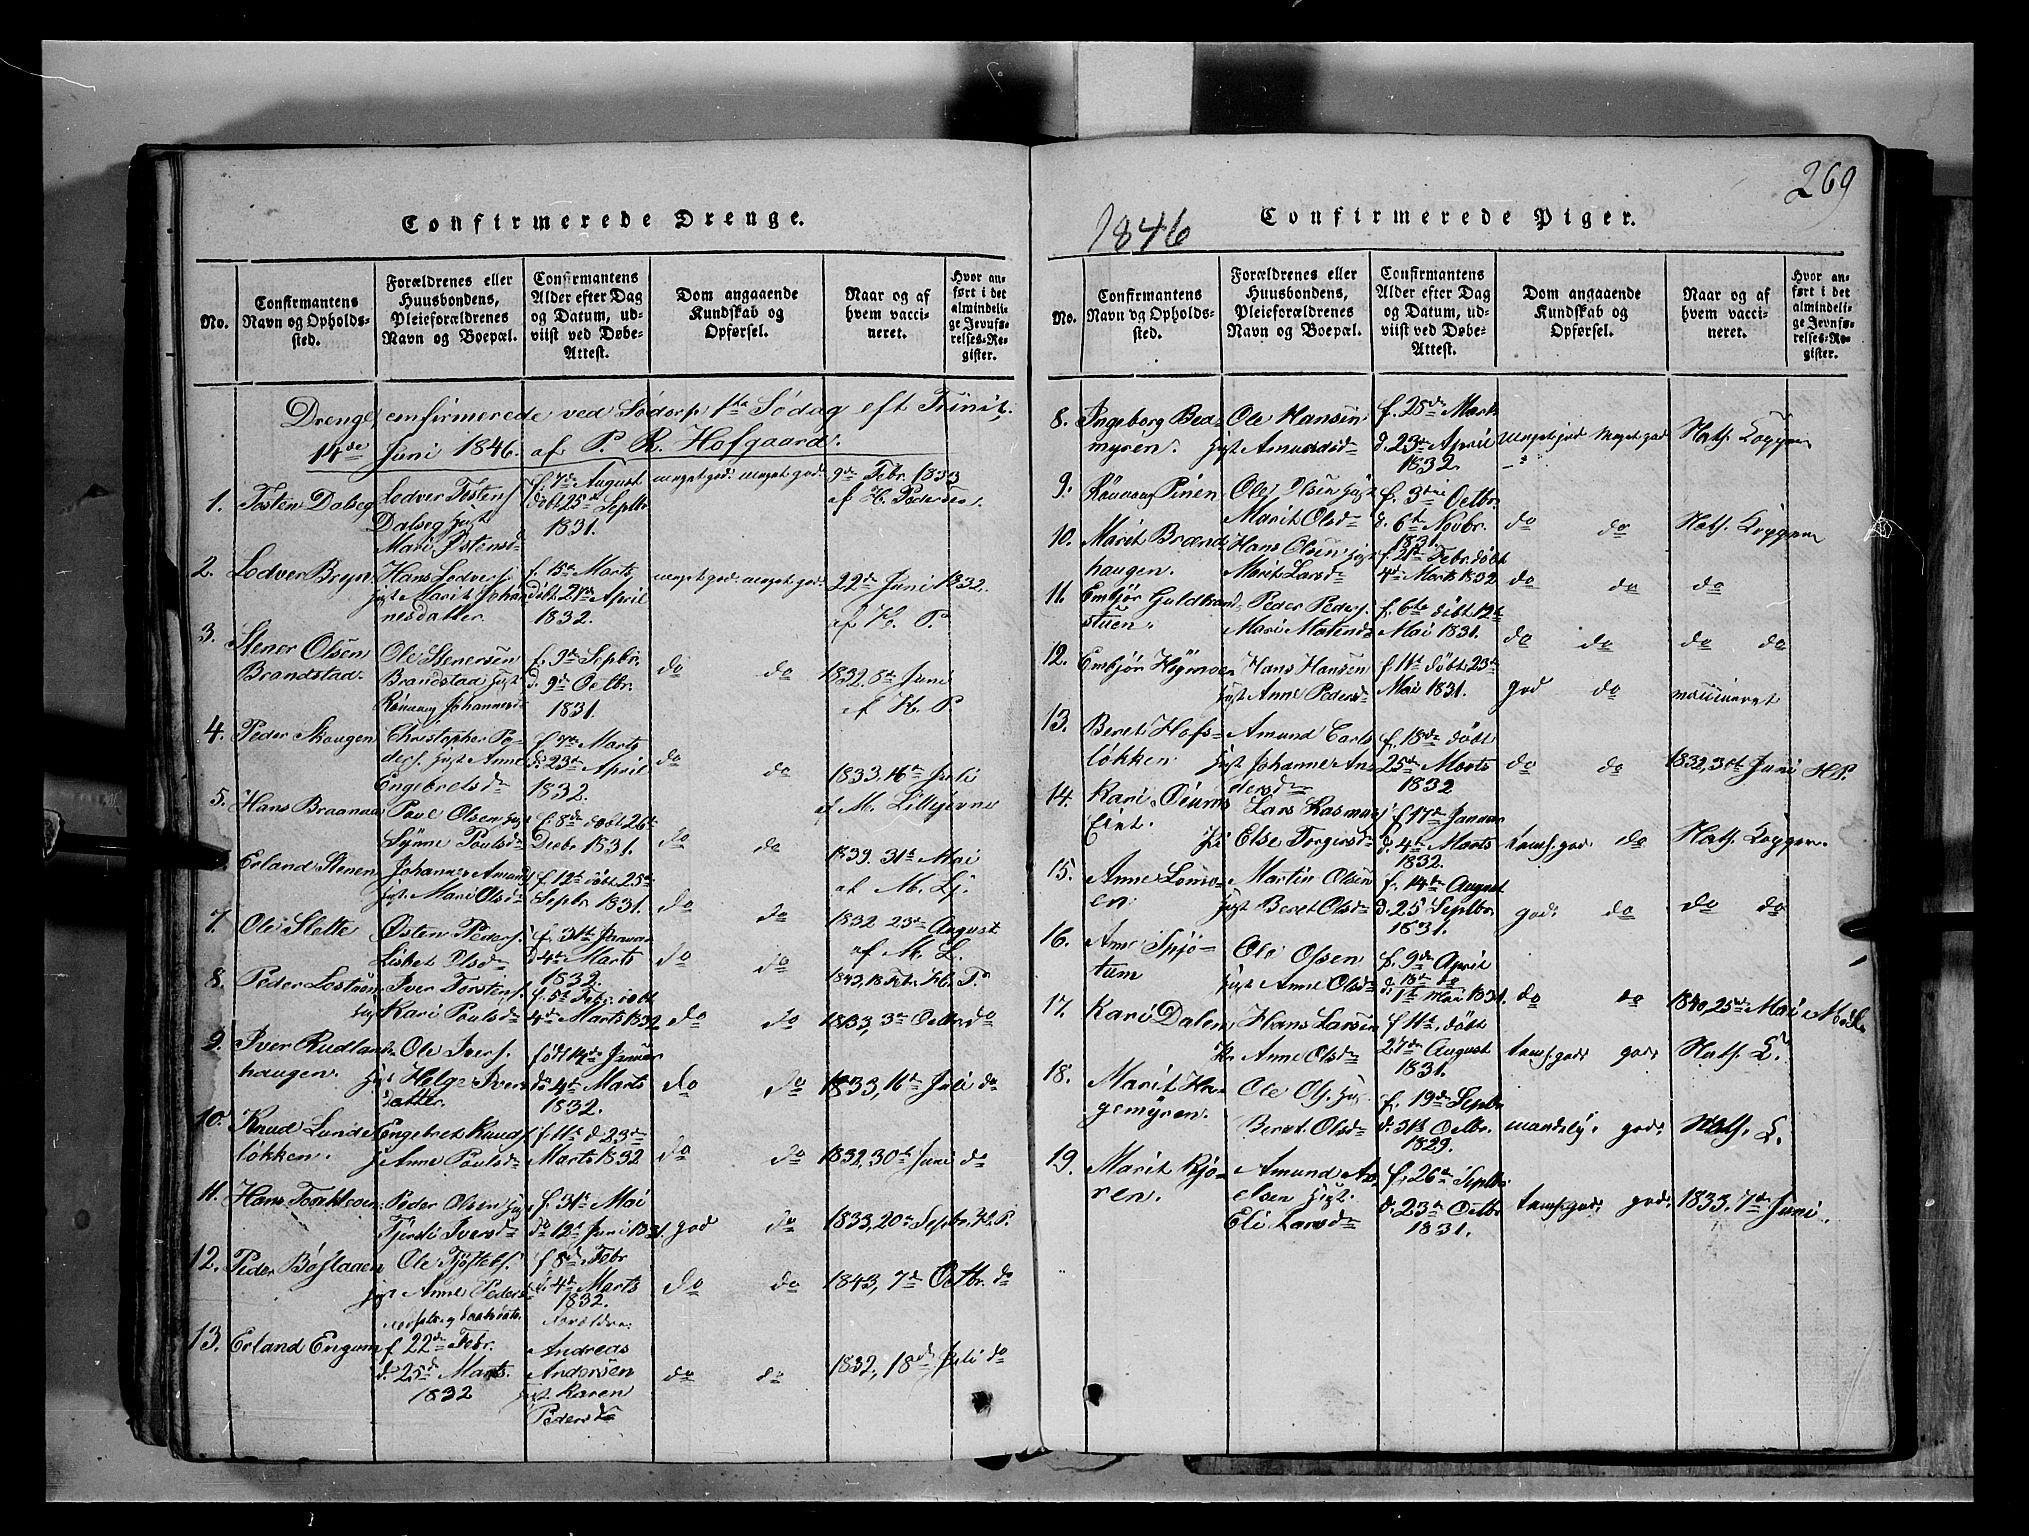 269
Confirmerede Drenge.
No.
Confirmantens Navn og Opholds-sted.
Forældrenes eller Huusbondens, Pleieforældrenes Navn og Boepæl.
Confirmantens Alder efter Dag og Datum, ud-viist ved Døbe-Attest.
Dom angaaende Kundskab og Opførsel.
Naar og af hvem vacci-neret.
Hvor an-ført i det almindeli-ge Jevnfø-relses-Re-gister.
Drenge confirmerede ved Södorp 1ste Södag eft Trinit.
14de Juni 1846. af P. R. Hofgaard.
1. Tosten Dalseg
Lodver Tostens.
Dalseg hust
Mari Östensd
f. 7de August
döbt 25de Septbr
1831.
meget god. meget god.
9de Febr. 1833
af H. Pedersen.
2. Lodver Bryn
Hans Lodvers.
hust Marit Johan
nesdatter.
f. 15de Marts
döbt 21de April
1832.
meget god. meget god.
22de Juni 1832.
af H. P.
3. Stener Olsen
Brandstad.
Ole Stenersen
Brandstad hust
Rönnaug Johannesd
f. 3de Septbr.
d. 9de Octbr.
1831.
do do
1832. 8de Juni
af H. P
4. Peder Skougen
Christopher Pe-
ders. hust Anne
Engebretsd
f. 7de Marts
d. 23de April
1832.
do do
1833, 16de Juli
af M. Lillejevne
5. Hans Braanaa
Poul Olsen hust
Synne Poulsd
f. 8de döbt 26de
Decbr 1831.
do do
1832. 31te Mai
af M. Lj.
Erland Stenen
Johannes Amund
hust Mari Olsd
f. 12te döbt 25de
Septbr 1831.
do do
1832 23de August
af M. L.
7. Ole Slette
Östen Peders.
Lisbet Olsd
f. 31te Januar
d 4de Marts
1832.
do do
1843, 18 Febr. H. P.
8. Peder
Iver Torstens.
hust Kari Poulsd
f. 5te Febr. döbt
4de Marts 1832
do do
1833, 3de Octbr do
9. Iver Rudland-
haugen.
Ole Ivers.
hust Helge Ivers
datter.
född 14de Januar
d. 4de Marts
1832.
do do
1833, 16de Juli do
10. Knud Lunde
lökken.
Engebret Knuds.
Anne Poulsd
f. 11te d. 23de
Marts 1832
do do
1832, 30te Juni do
11. Hans
Peder Olsen hust
Iversd
f. 31te Mai
d. 12te Juni 1831.
god do
1833, 20de Septbr. H. P.
12. Peder
Ole
hust Anne Peders
f. 8de Febr
d. 4de Marts
1832.
do do
1843, 7de Octbr. do
13. Erland Engum
f. 22de Febr.
d. 25de Marts.
1832
Forældre:
Andreas
Andersen
hust Karen
Pedersd
do do
1832, 18de Juli do
1846
Confirmerede Piger.
No.
Confirmantens Navn og Opholds-sted.
Forældrenes eller Huusbondens, Pleieforældrenes Navn og Boepæl.
Confirmantens Alder efter Dag og Datum, ud-viist ved Døbe-Attest.
Dom angaaende Kundskab og Opførsel.
Naar og af hvem vacci-neret.
Hvor an-ført i det almindeli-ge Jevnfø-relses-Re-gister.
8. Ingeborg Bed-
myren.
Ole Hansen
hust Amundsd
f. 25de Marts
d. 23de April
1832.
meget god meget god
Nath. Kopper
9. Rönnaug Pinen
Ole Olsen hust
Marit Olsd
f. 3die Octbr.
d. 6te Novbr.
1831.
do do
Nath. Kopper
10. Marit Brænd
haugen.
Hans Olsen hust
Marit Larsd
f. 21de Febr. döbt
4de Marts 1832
do do do
11. Embjör Guldbrand
stuen.
Peder Peders.
Mari Mortensd
f. 6te döbt 12te
Mai 1831.
do do do do
12. Embjör
Hans Hansen
hust Anne Pedersd
f. 11te döbt 23de
Mai 1831.
god do
13. Beret Hofs-
lökken
Amund Carls
hust Johanne An-
dersd
f. 18de döbt
25de Marts
1832
do do
1832, 30te Juni H P.
14. Kari
Eint.
Lars Rasmus
Else Torgersd
f. 17de Januar
d. 4de Marts
1832.
temf. god. do
Nath. Kopper.
15. Anne Lomo-
en.
Martin Olsen
hust Beret Olsd
f. 14de August
d. 25 Septbr.
1831.
god. do do do
16. Anne Spjö-
tum
Ole Olsen
hust Anne Olsd
f. 9de April
d. 1ste Mai 1831.
do do
1840, 25de Mai
17. Kari Dalen
Hans Larsen
Anne Olsd
f. 11te döbt
27de August
1831.
temf. god. god.
Nath. K.
18. Marit Ha-
gemyren.
Ole Ols. hus.
Beret Olsd
f. 19de Septbr
d. 31te Octbr.
1829.
maadelig. god.
Nath. K.
19. Marit Kjö-
ren.
Amund Ax-
elsen hust.
Eli Larsd
f. 26de Septbr
d. 23de Octbr
1831.
temf. god. god.
1833, 7de Juni.